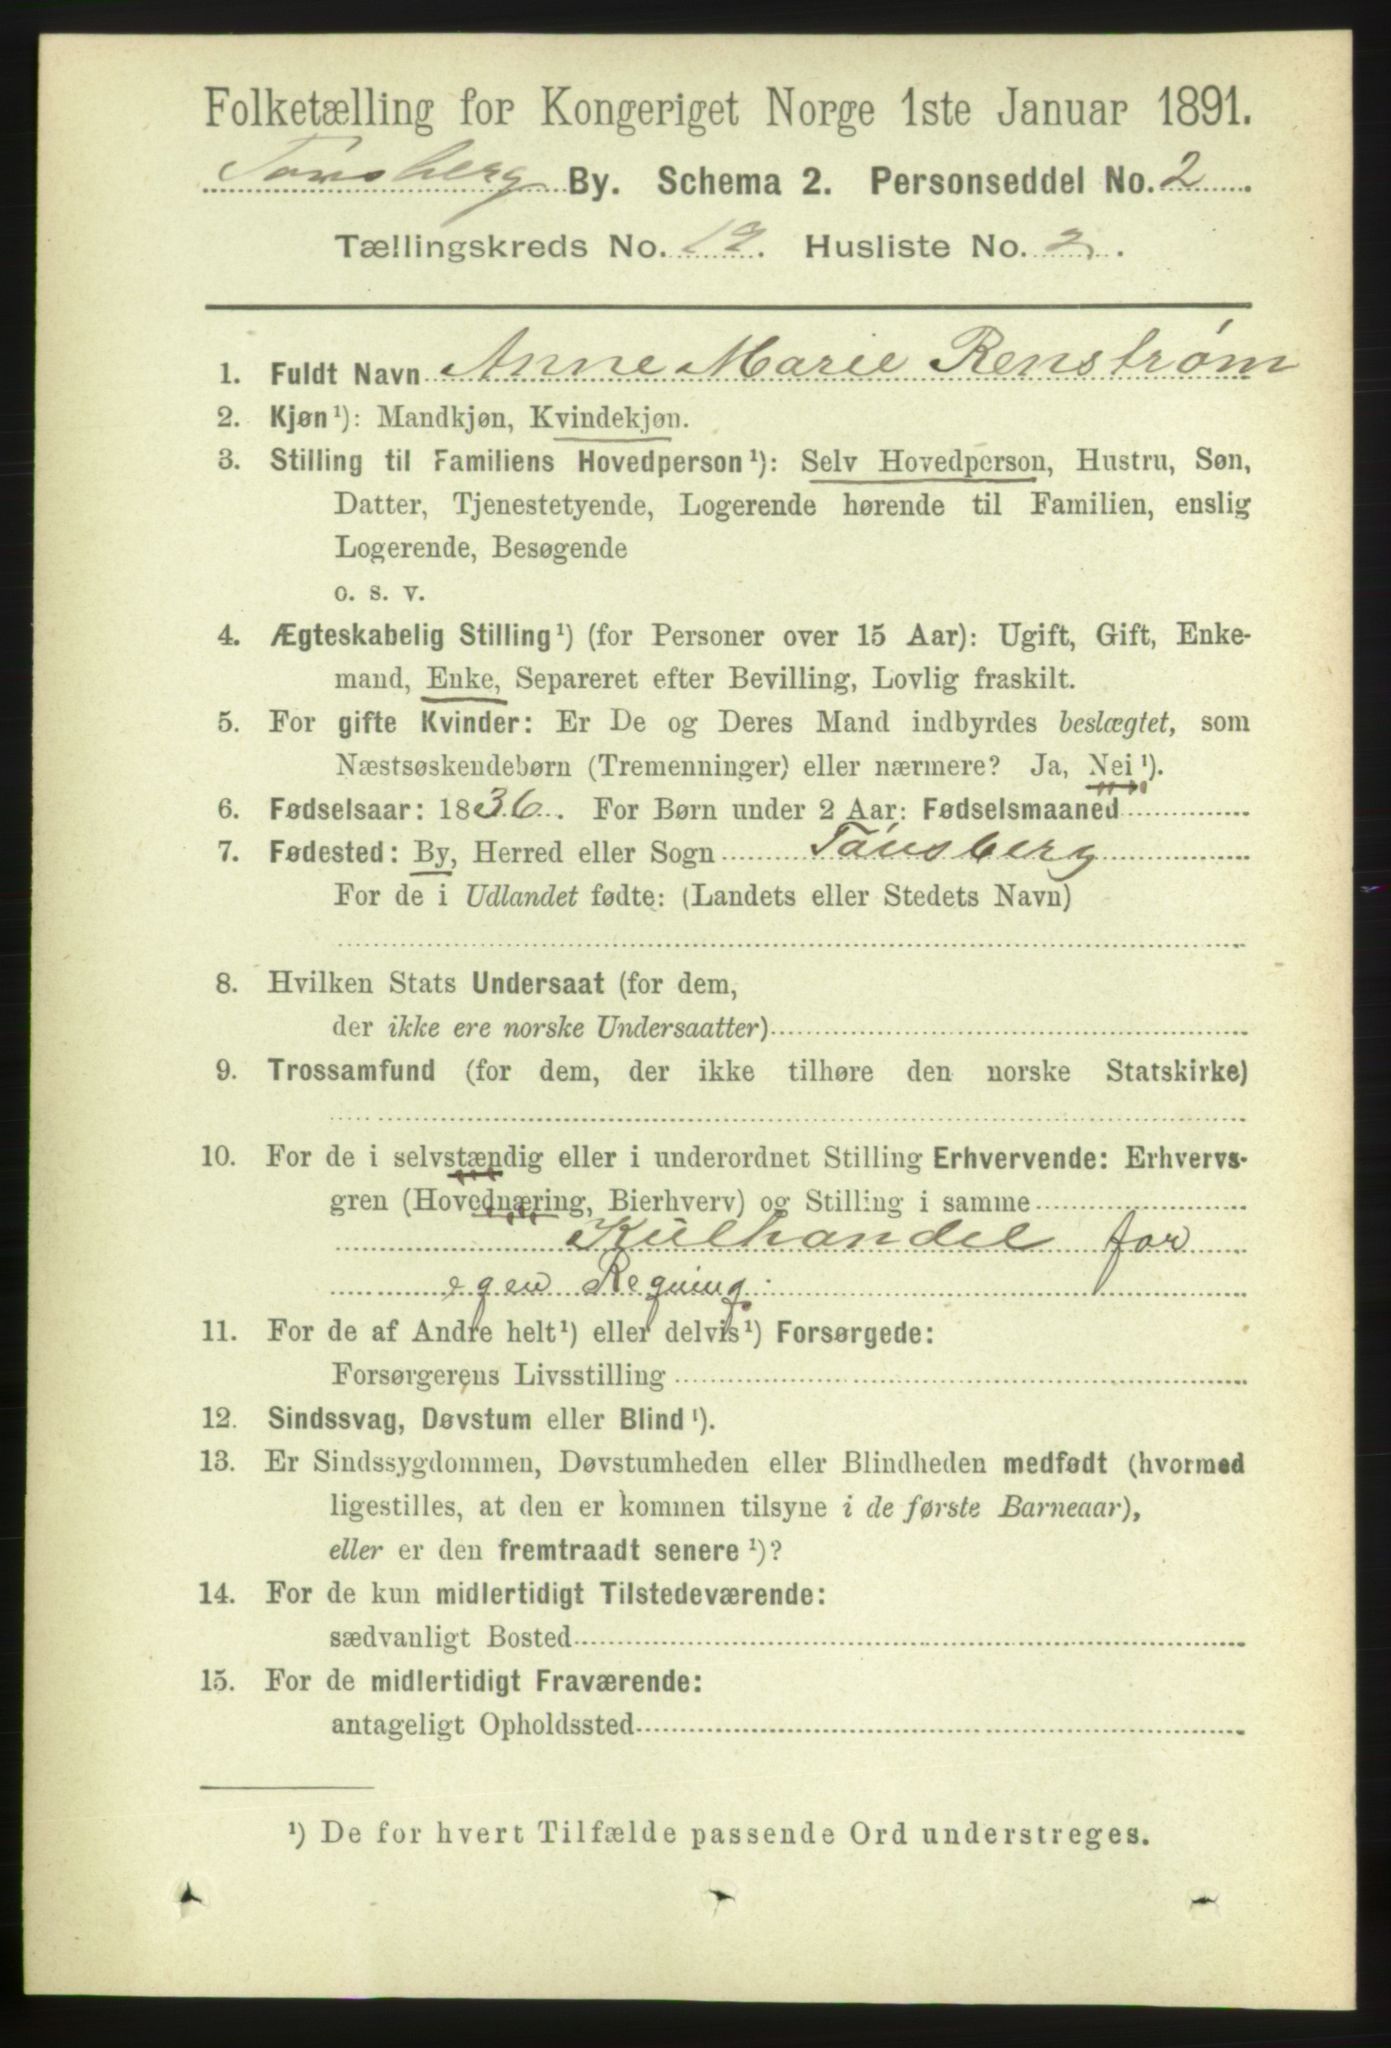 Folketælling for Kongeriget Norge 1ste Januar 1891.
Tønsberg By. Schema 2. Personseddel No. 2
Tællingskreds No. 12. Husliste No. 2.
1. Fuldt Navn Anne Marie Renstrøm
2. Kjøn¹): Mandkjøn, Kvindekjøn.
3. Stilling til Familiens Hovedperson¹): Selv Hovedperson, Hustru, Søn,
Datter, Tjenestetyende, Logerende hørende til Familien, enslig
Logerende, Besøgende
o. s. v.
4. Ægteskabelig Stilling¹) (for Personer over 15 Aar): Ugift, Gift, Enke-
mand, Enke, Separeret efter Bevilling, Lovlig fraskilt.
5. For gifte Kvinder: Er De og Deres Mand indbyrdes beslægtet, som
Næstsøskendebørn (Tremenninger) eller nærmere? Ja, Nei¹).
6. Fødselsaar: 1836. For Børn under 2 Aar: Fødselsmaaned
7. Fødested: By, Herred eller Sogn Tønsberg
For de i Udlandet fødte: (Landets eller Stedets Navn)
8. Hvilken Stats Undersaat (for dem,
der ikke ere norske Undersaatter)
9. Trossamfund (for dem, der ikke tilhøre den norske Statskirke)
10. For de i selvstændig eller i underordnet Stilling Erhvervende: Erhvervs-
gren (Hovednæring, Bierhverv) og Stilling i samme
Kulhandel for
egen Regning.
11. For de af Andre helt¹) eller delvis¹) Forsørgede:
Forsørgerens Livsstilling
12. Sindssvag, Døvstum eller Blind¹).
13. Er Sindssygdommen, Døvstumheden eller Blindheden medfødt (hvormed
ligestilles, at den er kommen tilsyne i de første Barneaar),
eller er den fremtraadt senere¹)?
14. For de kun midlertidigt Tilstedeværende:
sædvanligt Bosted
15. For de midlertidigt Fraværende:
antageligt Opholdssted
¹) De for hvert Tilfælde passende Ord understreges.